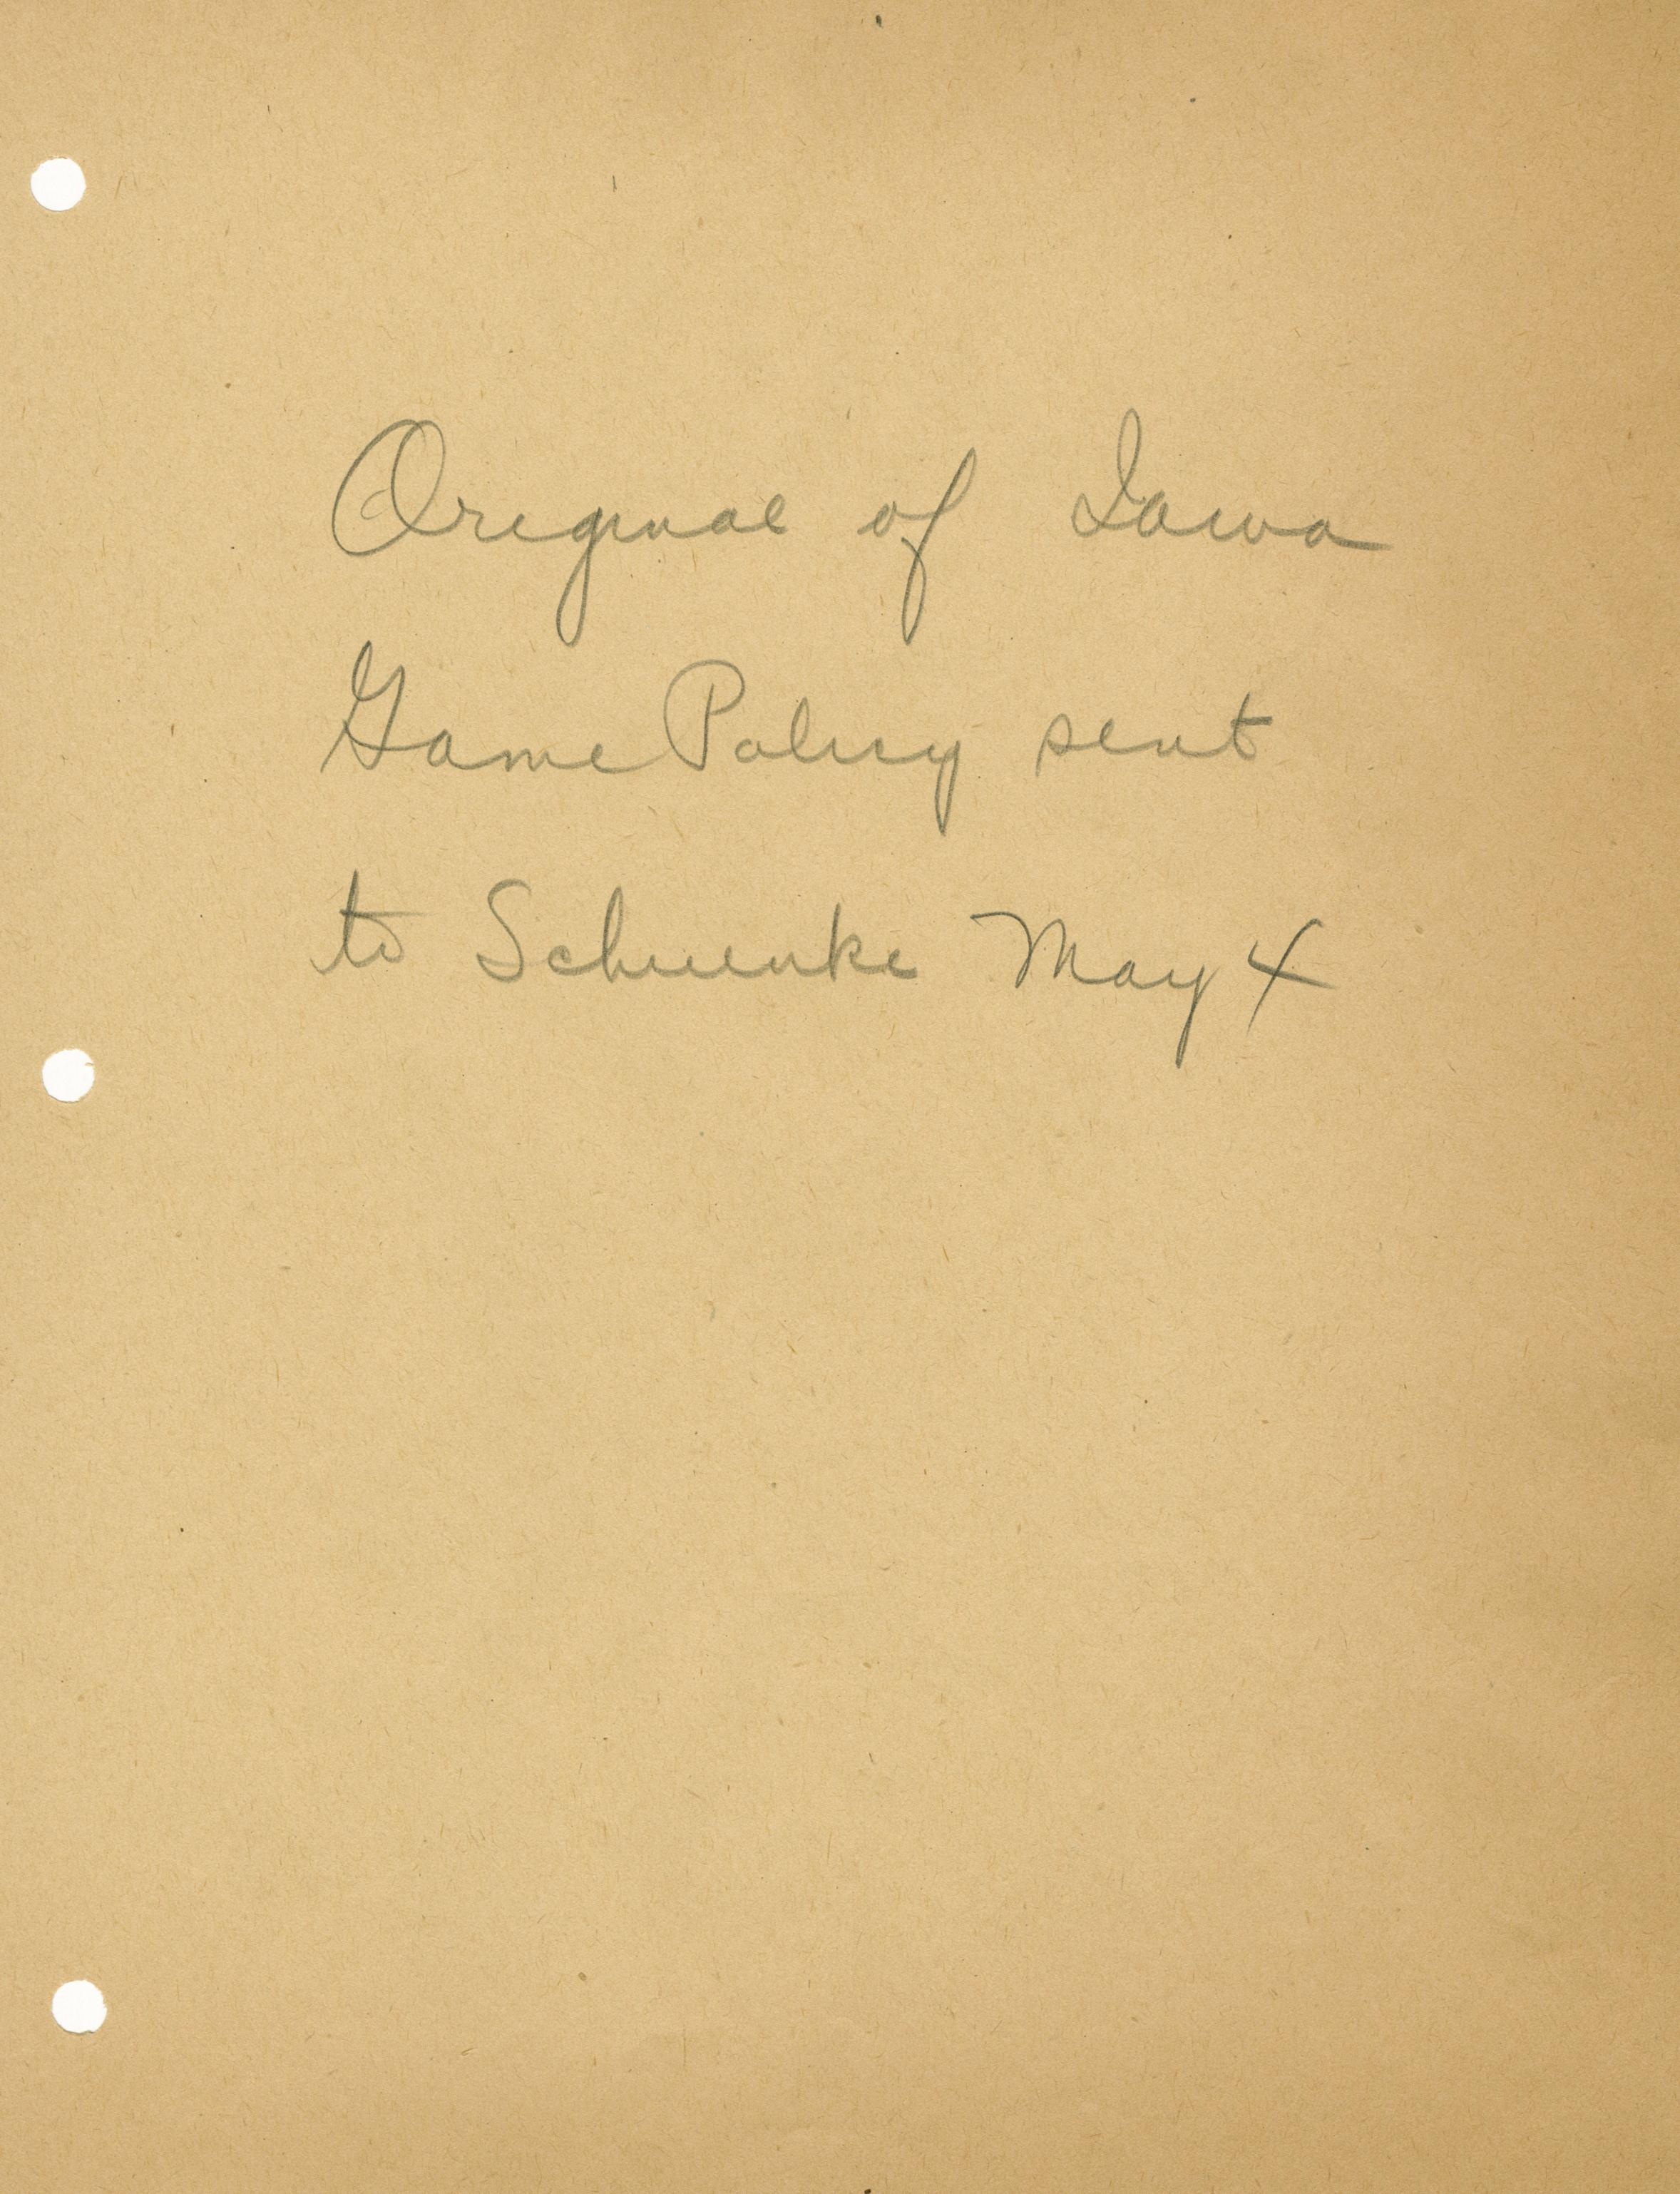 Original of Iowa
Game Policy sent
to Schuenke May 4